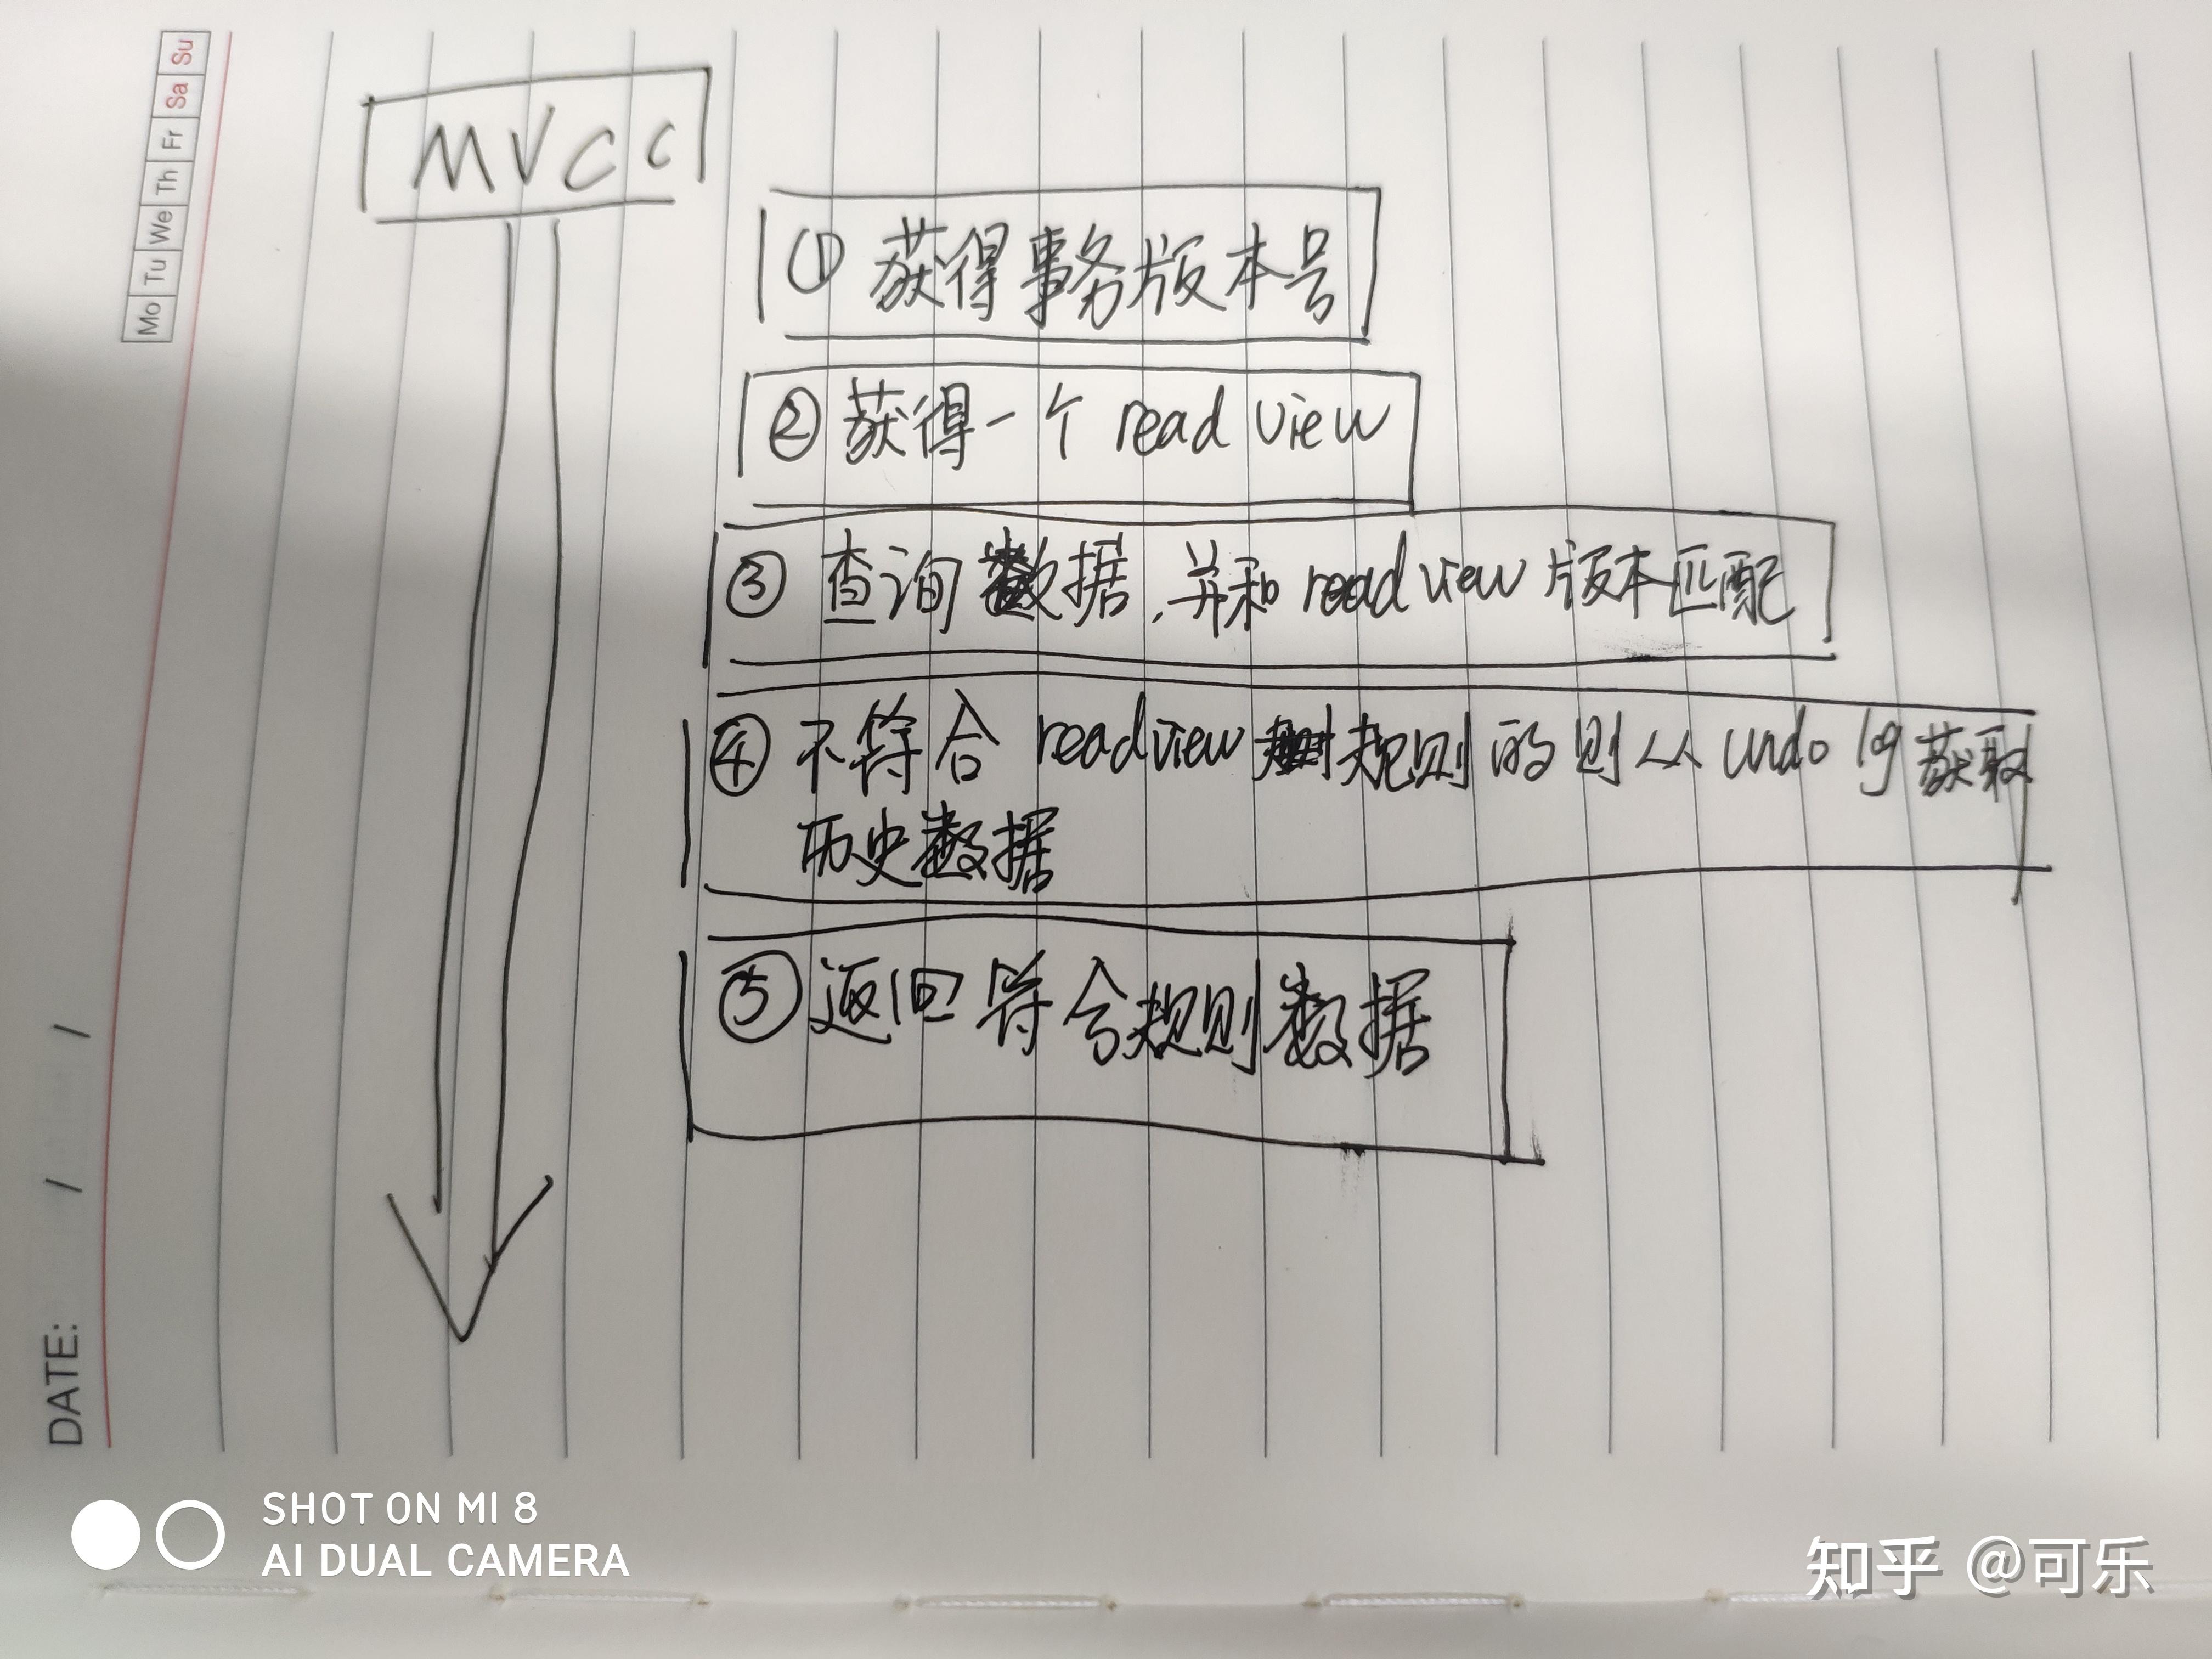 Mo Tu We Th Fr Sa Su
MVCC
① 获得事务版本号
② 获得一个 read view
③ 查询数据,并和 read view 版本匹配
④ 不符合 readview 规则的则从 undo log 获取
历史数据
⑤ 返回符合规则数据
DATE: / /
SHOT ON MI 8
AI DUAL CAMERA
知乎 @可乐